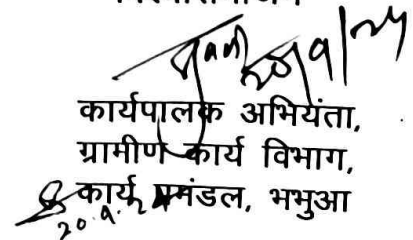 कार्यपालक अभियंता,
ग्रामीण कार्य विभाग,
कार्य प्रमंडल, भभुआ
20.9.24